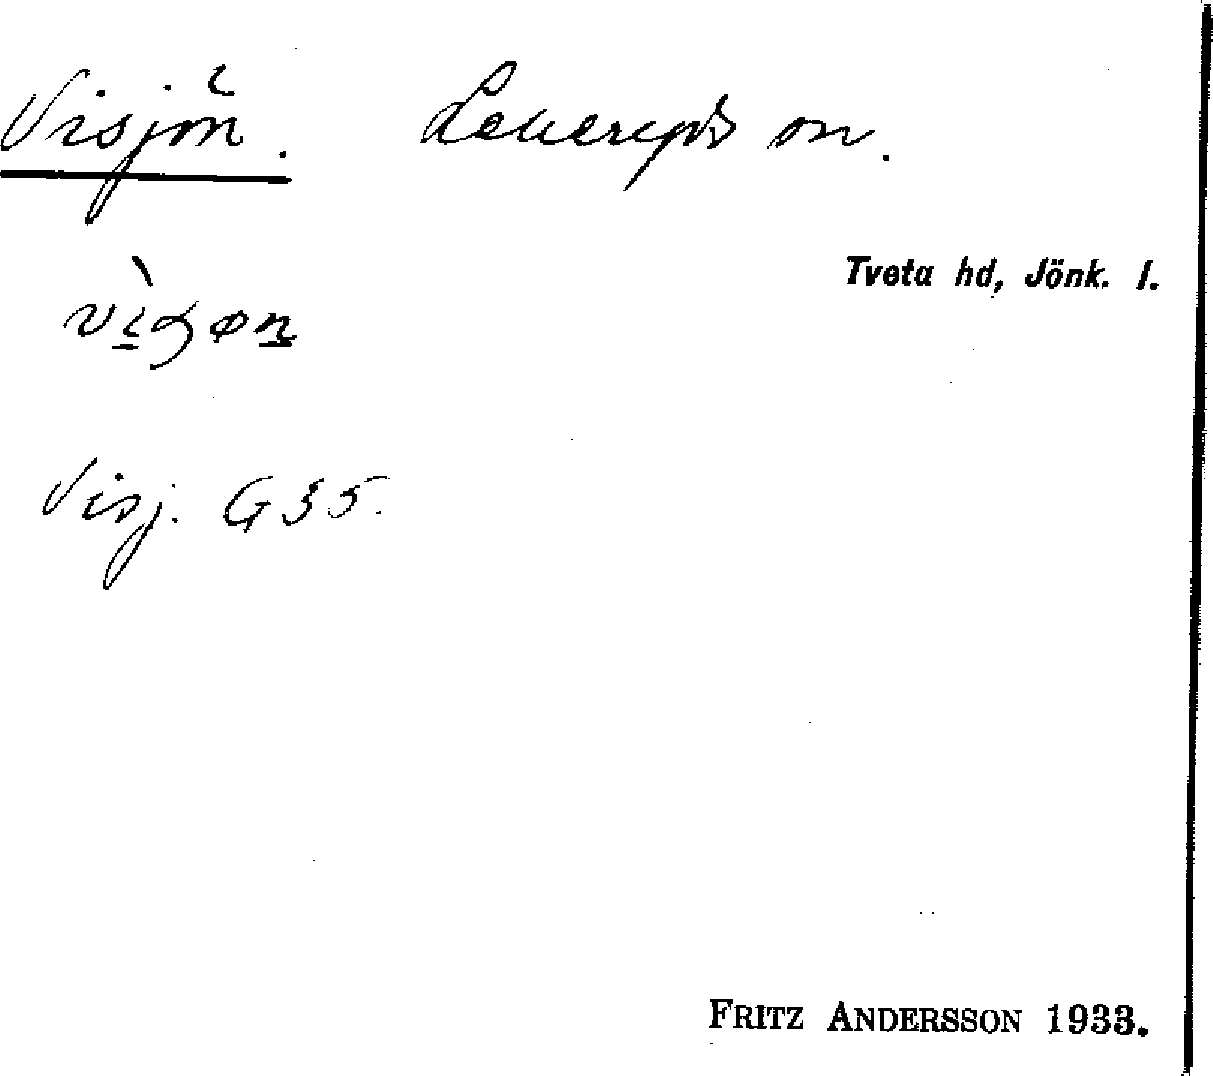 Visjön. Lekeryds sn.
Tveta hd, Jönk. l.
Visj. G 35.
FRITZ ANDERSSON 1933.